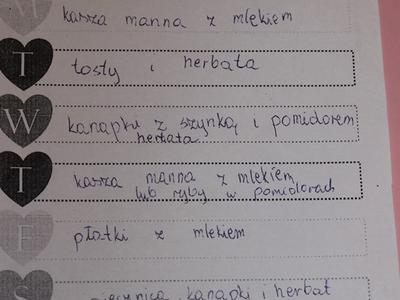 M kasza manna z mlękiem
T tosty i herbata
W kanapki z szynką i pomidorem
herbata
T kasza manna z mlękiem
lub ryby w pomidorach
F płatki z mlękiem
S kanapki i herbat